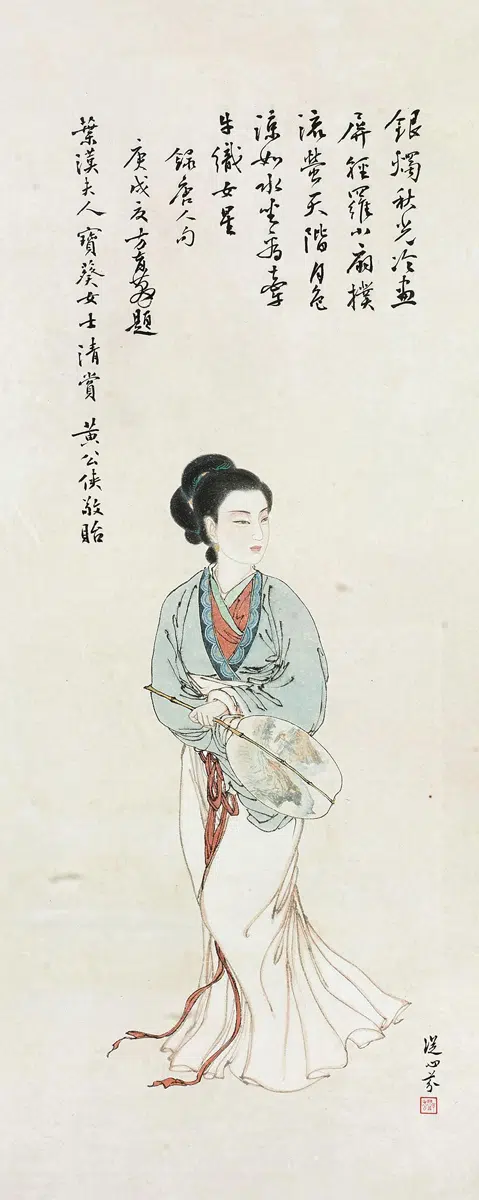 銀燭秋光冷畫
屏輕羅小扇撲
流螢天階月色
涼如水坐看牽
牛織女星
錄唐人句
庚戌夏方召麐題
葉漢夫人寶葵女士清賞 黃公俠敬貽
心芬